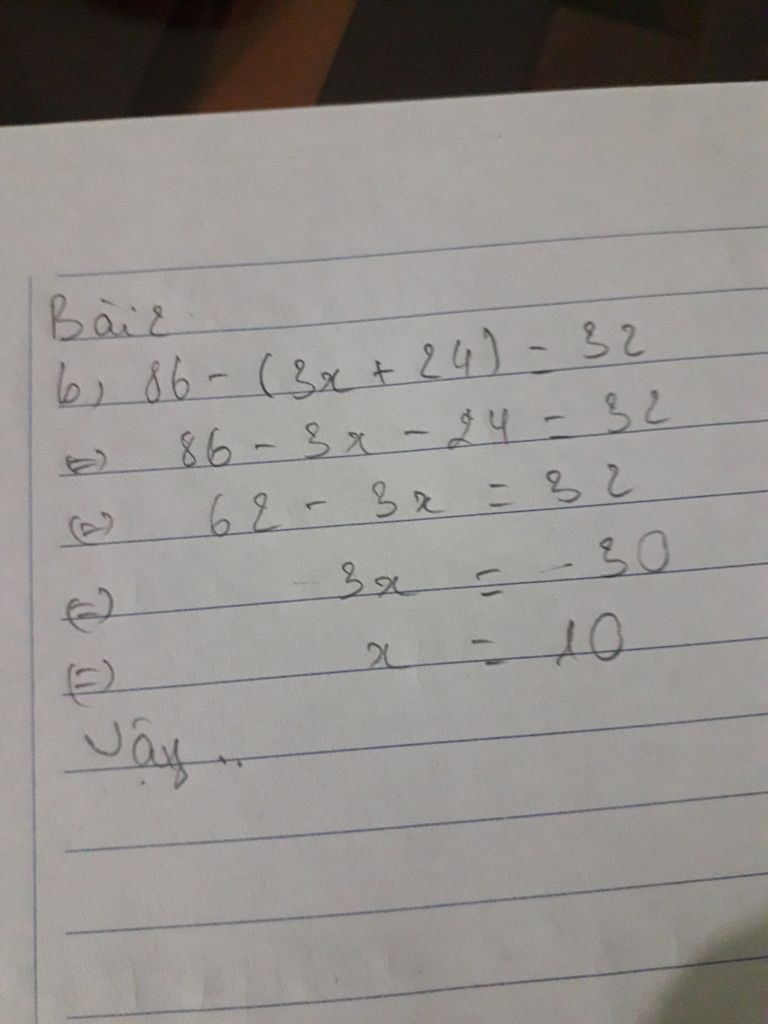 Bài 2
b, 86 - (3x + 24) = 32
(=) 86 - 3x - 24 = 32
(=) 62 - 3x = 32
(=) 3x = -30
(=) x = 10
Vậy ..